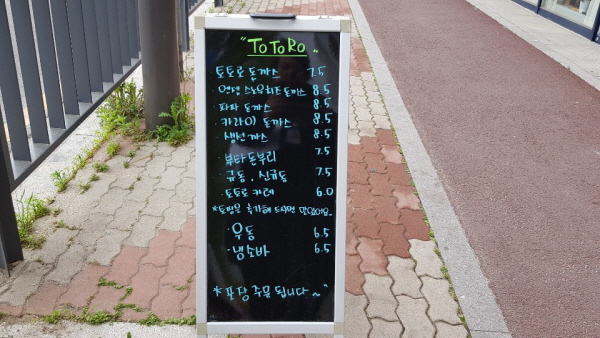 "ToToRo"
토토로 돈까스 7.5
· 스노우치즈 돈까스 8.5
· 파파 돈까스 8.5
· 카라이 돈까스 8.5
· 생선까스 8.5
· 부타돈부리 7.5
· 규동 · 신규동 7.5
· 토토로 카레 6.0
*토핑을 추가해 드시면 맛있어요~
· 우동 6.5
· 냉소바 6.5
*포장 주문 됩니다~"